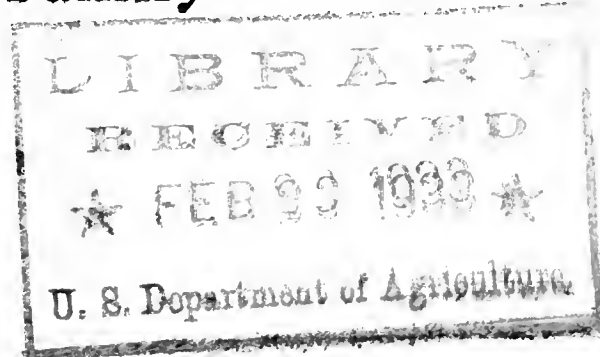 LIBRARY
RECEIVED
★ FEB 1933 ★
U. S. Department of Agriculture,